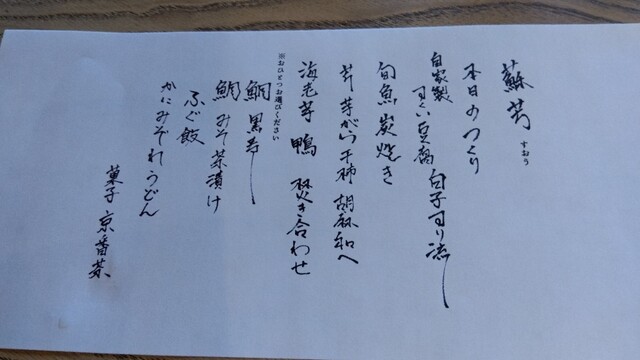 蘇芳
すおう
本日のつくり
自家製 すくい豆腐 白子すり流し
旬魚炭焼き
芹 芽がらし 干柿 胡麻和へ
海老芋 鴨 焚き合わせ
※おひとつお選びください
鯛黒寿し
鯛みそ茶漬け
ふぐ飯
かにみぞれうどん
菓子 京番茶